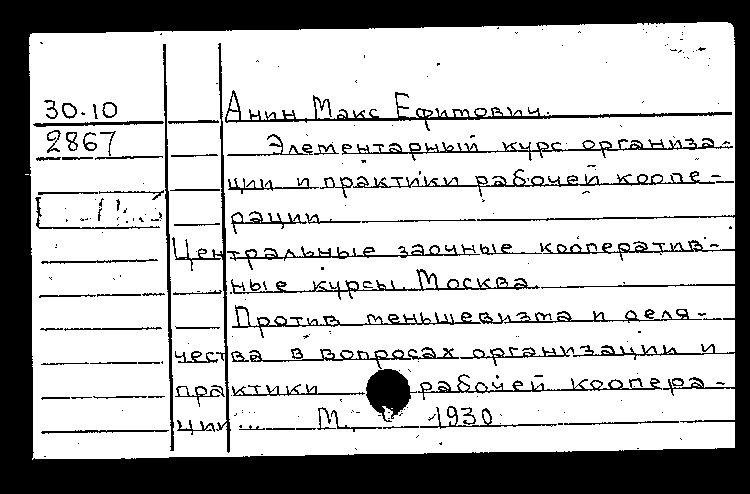 30.10
2867
Анин, Макс Ефимович.
Элементарный курс организа-
ции и практики рабочей коопе-
рации.
Центральные заочные кооператив-
ные курсы. Москва.
Против меньшевизма и деля-
чества в вопросах организации и
практики рабочей коопера-
ции... М., 1930